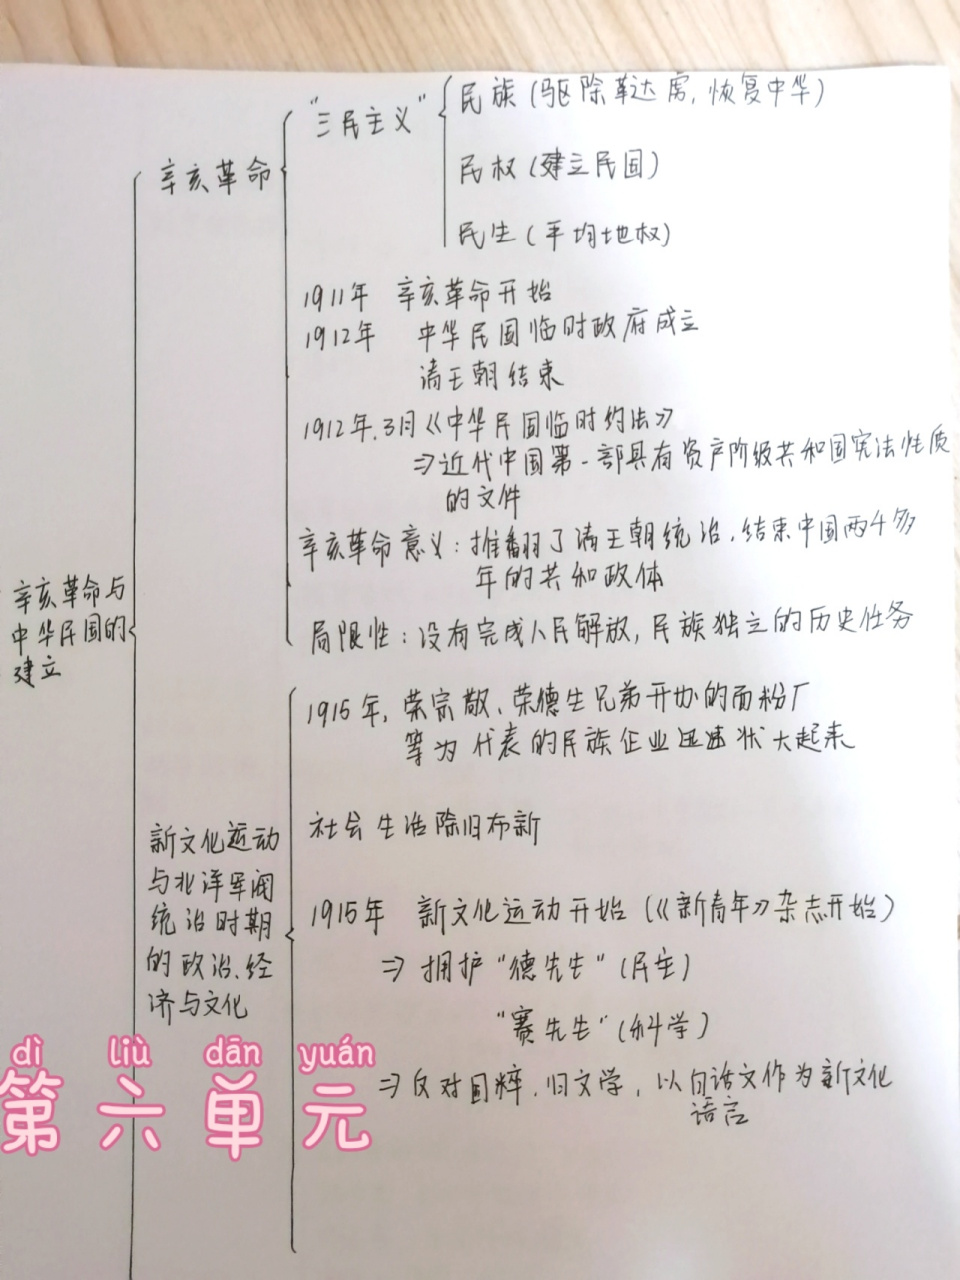 "三民主义"
民族(驱除鞑虏,恢复中华)
辛亥革命
民权(建立民国)
民生(平均地权)
1911年 辛亥革命开始
1912年 中华民国临时政府成立
清王朝结束
1912年.3月《中华民国临时约法》
⇒近代中国第一部具有资产阶级共和国宪法性质
的文件
辛亥革命意义:推翻了清王朝统治,结束中国两千多
年的共和政体
辛亥革命与
中华民国的
建立
局限性:没有完成人民解放,民族独立的历史任务
1915年,荣宗敬、荣德生兄弟开办的面粉厂
等为代表的民族企业迅速状大起来
社会生活除旧布新
新文化运动
与北洋军阀
统治时期
的政治、经
济与文化
1915年 新文化运动开始(《新青年》杂志开始)
⇒ 拥护"德先生"(民主)
"赛先生"(科学)
⇒反对国粹、旧文学,以白话文作为新文化
语言
dì liù dān yuán
第六单元